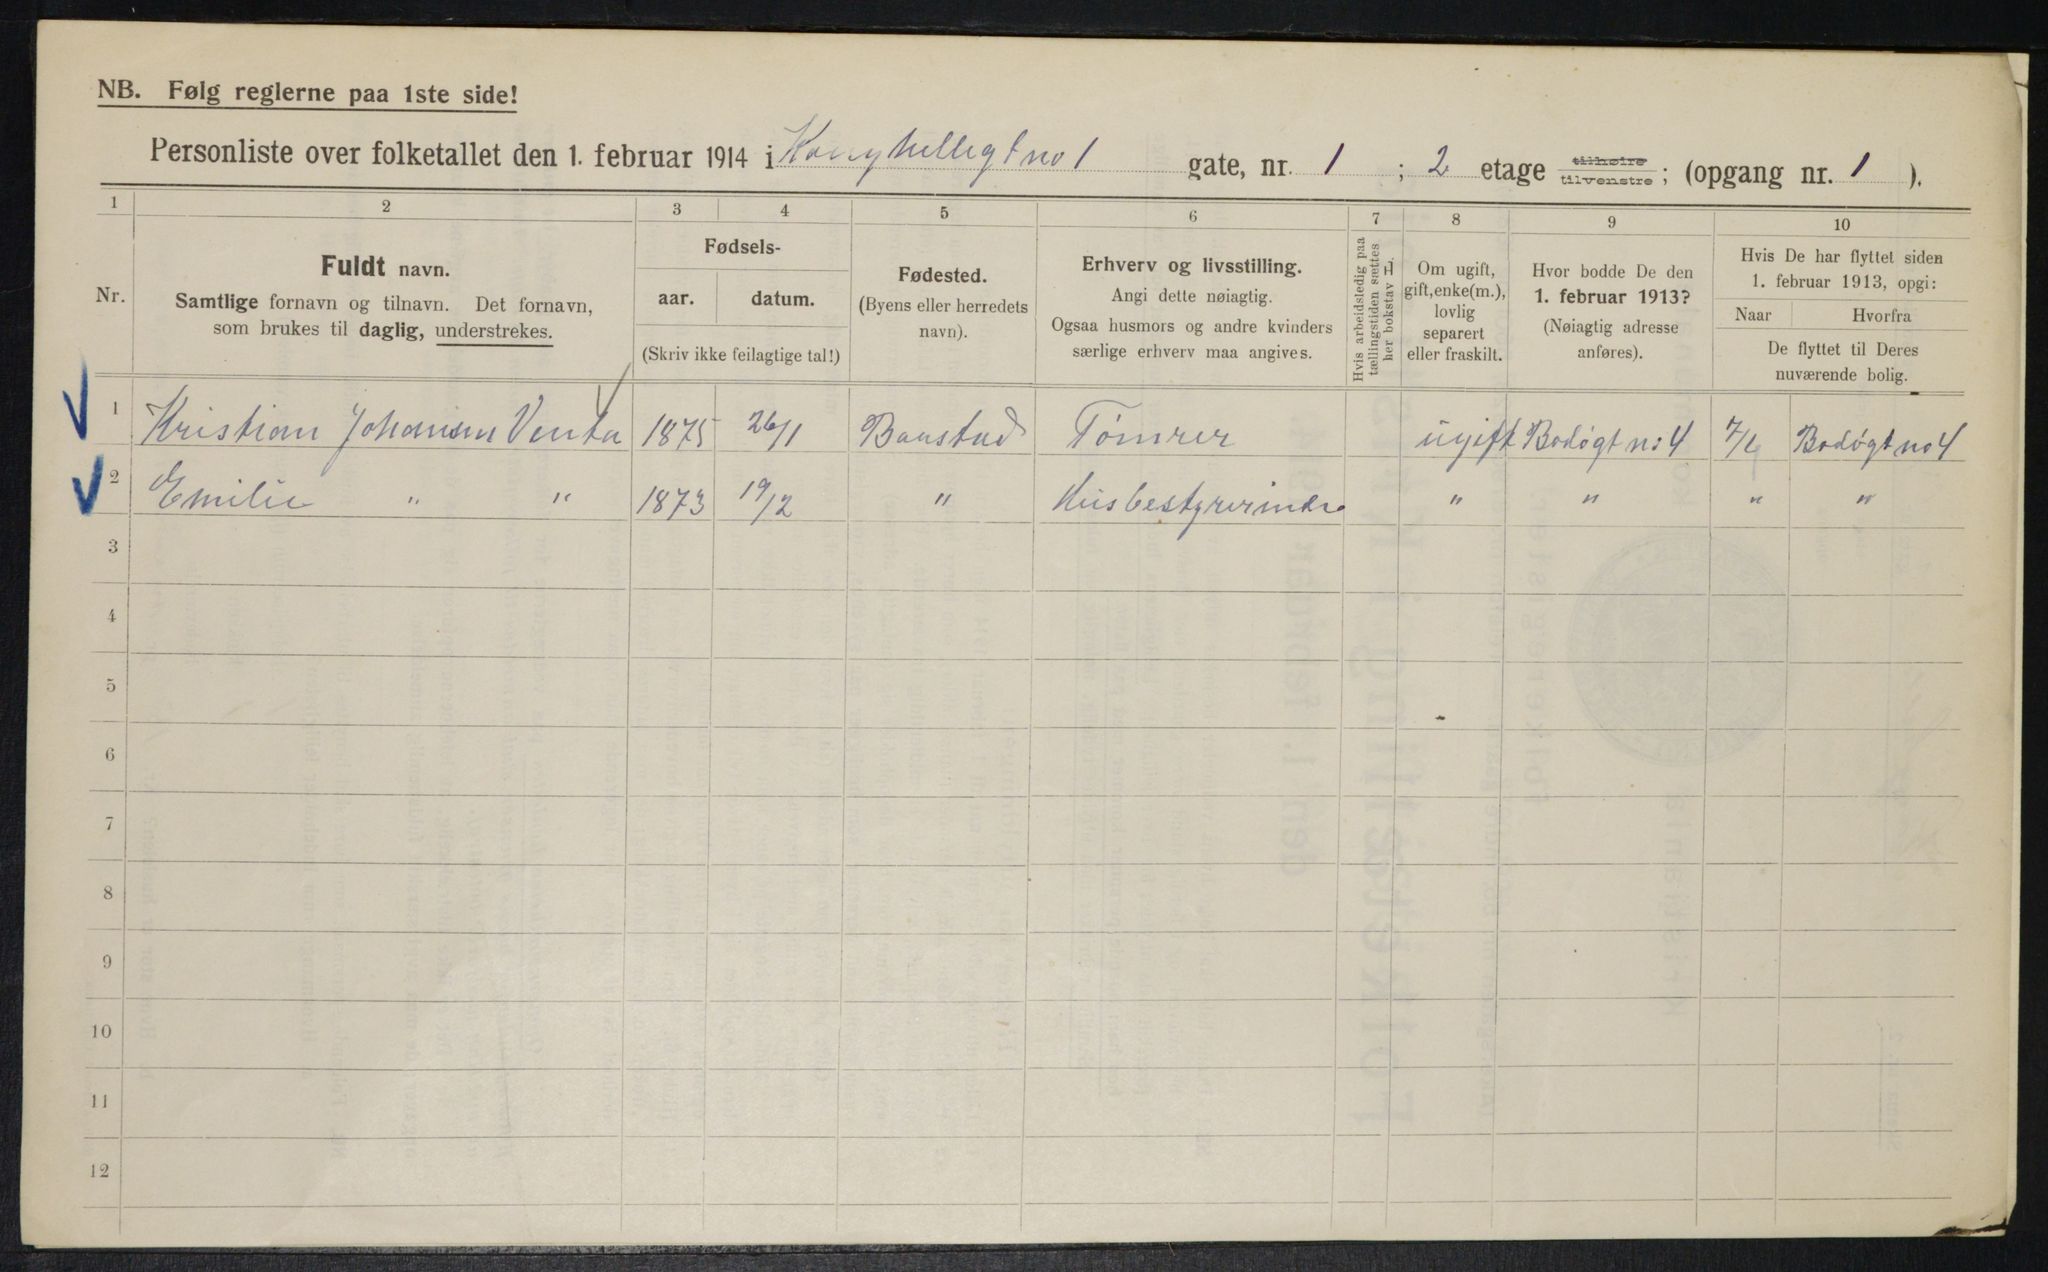 NB. Følg reglerne paa 1ste side!
Personliste over folketallet den 1. februar 1914 i Konghellegt no 1 gate, nr. 1 ; 2 etage tilhøire tilvenstre ; (opgang nr. 1 ).
1 2 3 4 5 6 7 8 9 10
Nr.
Fuldt navn.
Samtlige fornavn og tilnavn. Det fornavn,
som brukes til daglig, understrekes.
Fødsels-
aar. datum.
(Skriv ikke feilagtige tal!)
Fødested.
(Byens eller herredets
navn).
Erhverv og livsstilling.
Angi dette nøiagtig.
Ogsaa husmors og andre kvinders
særlige erhverv maa angives.
Hvis arbeidsledig paa
tællingstiden sættes
her bokstav L.
Om ugift,
gift, enke(m.),
lovlig
separert
eller fraskilt.
Hvor bodde De den
1. februar 1913?
(Nøiagtig adresse
anføres).
Hvis De har flyttet siden
1. februar 1913, opgi:
Naar Hvorfra
De flyttet til Deres
nuværende bolig.
1 Kristian Johansen Venta 1875 26/1 Baastad Tømrer ugift Bodøgt no: 4 Bodøgt no 4
2 Emilie " " 1873 19/2 " Husbestyrerinde " " " "
3
4
5
6
7
8
9
10
11
12